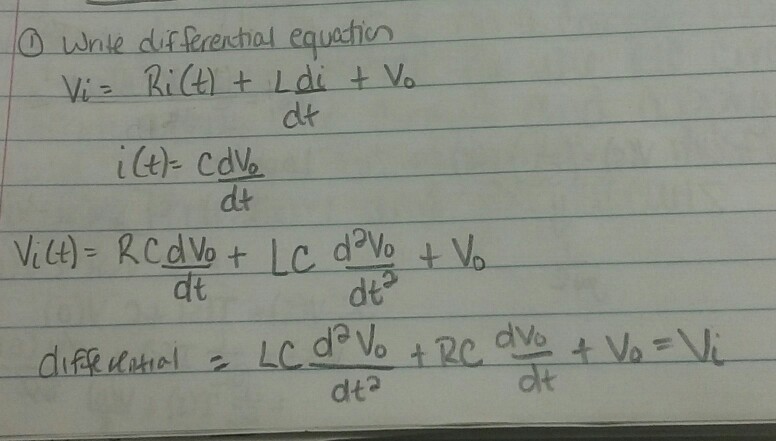 ① Write differential equation
Vi = Ri(t) + L di/dt + Vo
i(t) = C dVo/dt
Vi(t) = RC dVo/dt + LC d²Vo/dt² + Vo
differential = LC d²Vo/dt² + RC dVo/dt + Vo = Vi